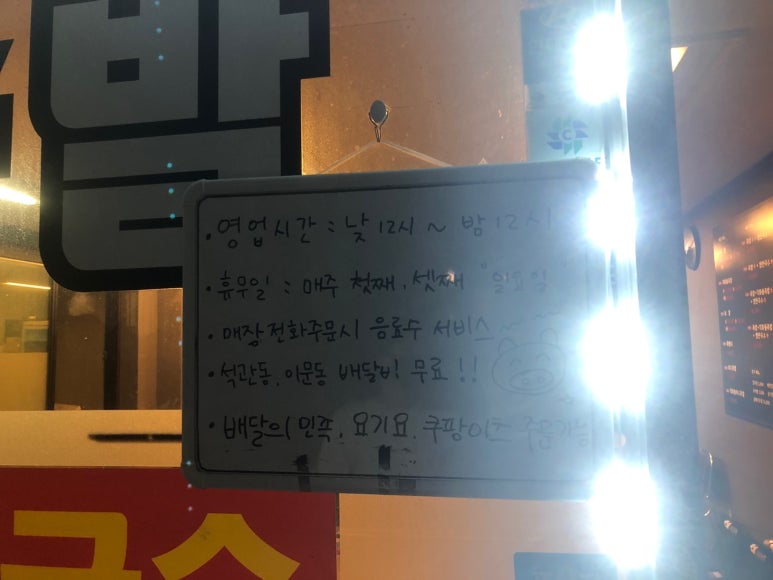 발
• 영업시간 : 낮 12시 ~ 밤 12시
• 휴무일 : 매주 첫째, 셋째 "일요일"
• 매장전화주문시 음료수 서비스
• 석관동, 이문동 배달비 무료!!
• 배달의민족, 요기요, 쿠팡이츠 주문가능